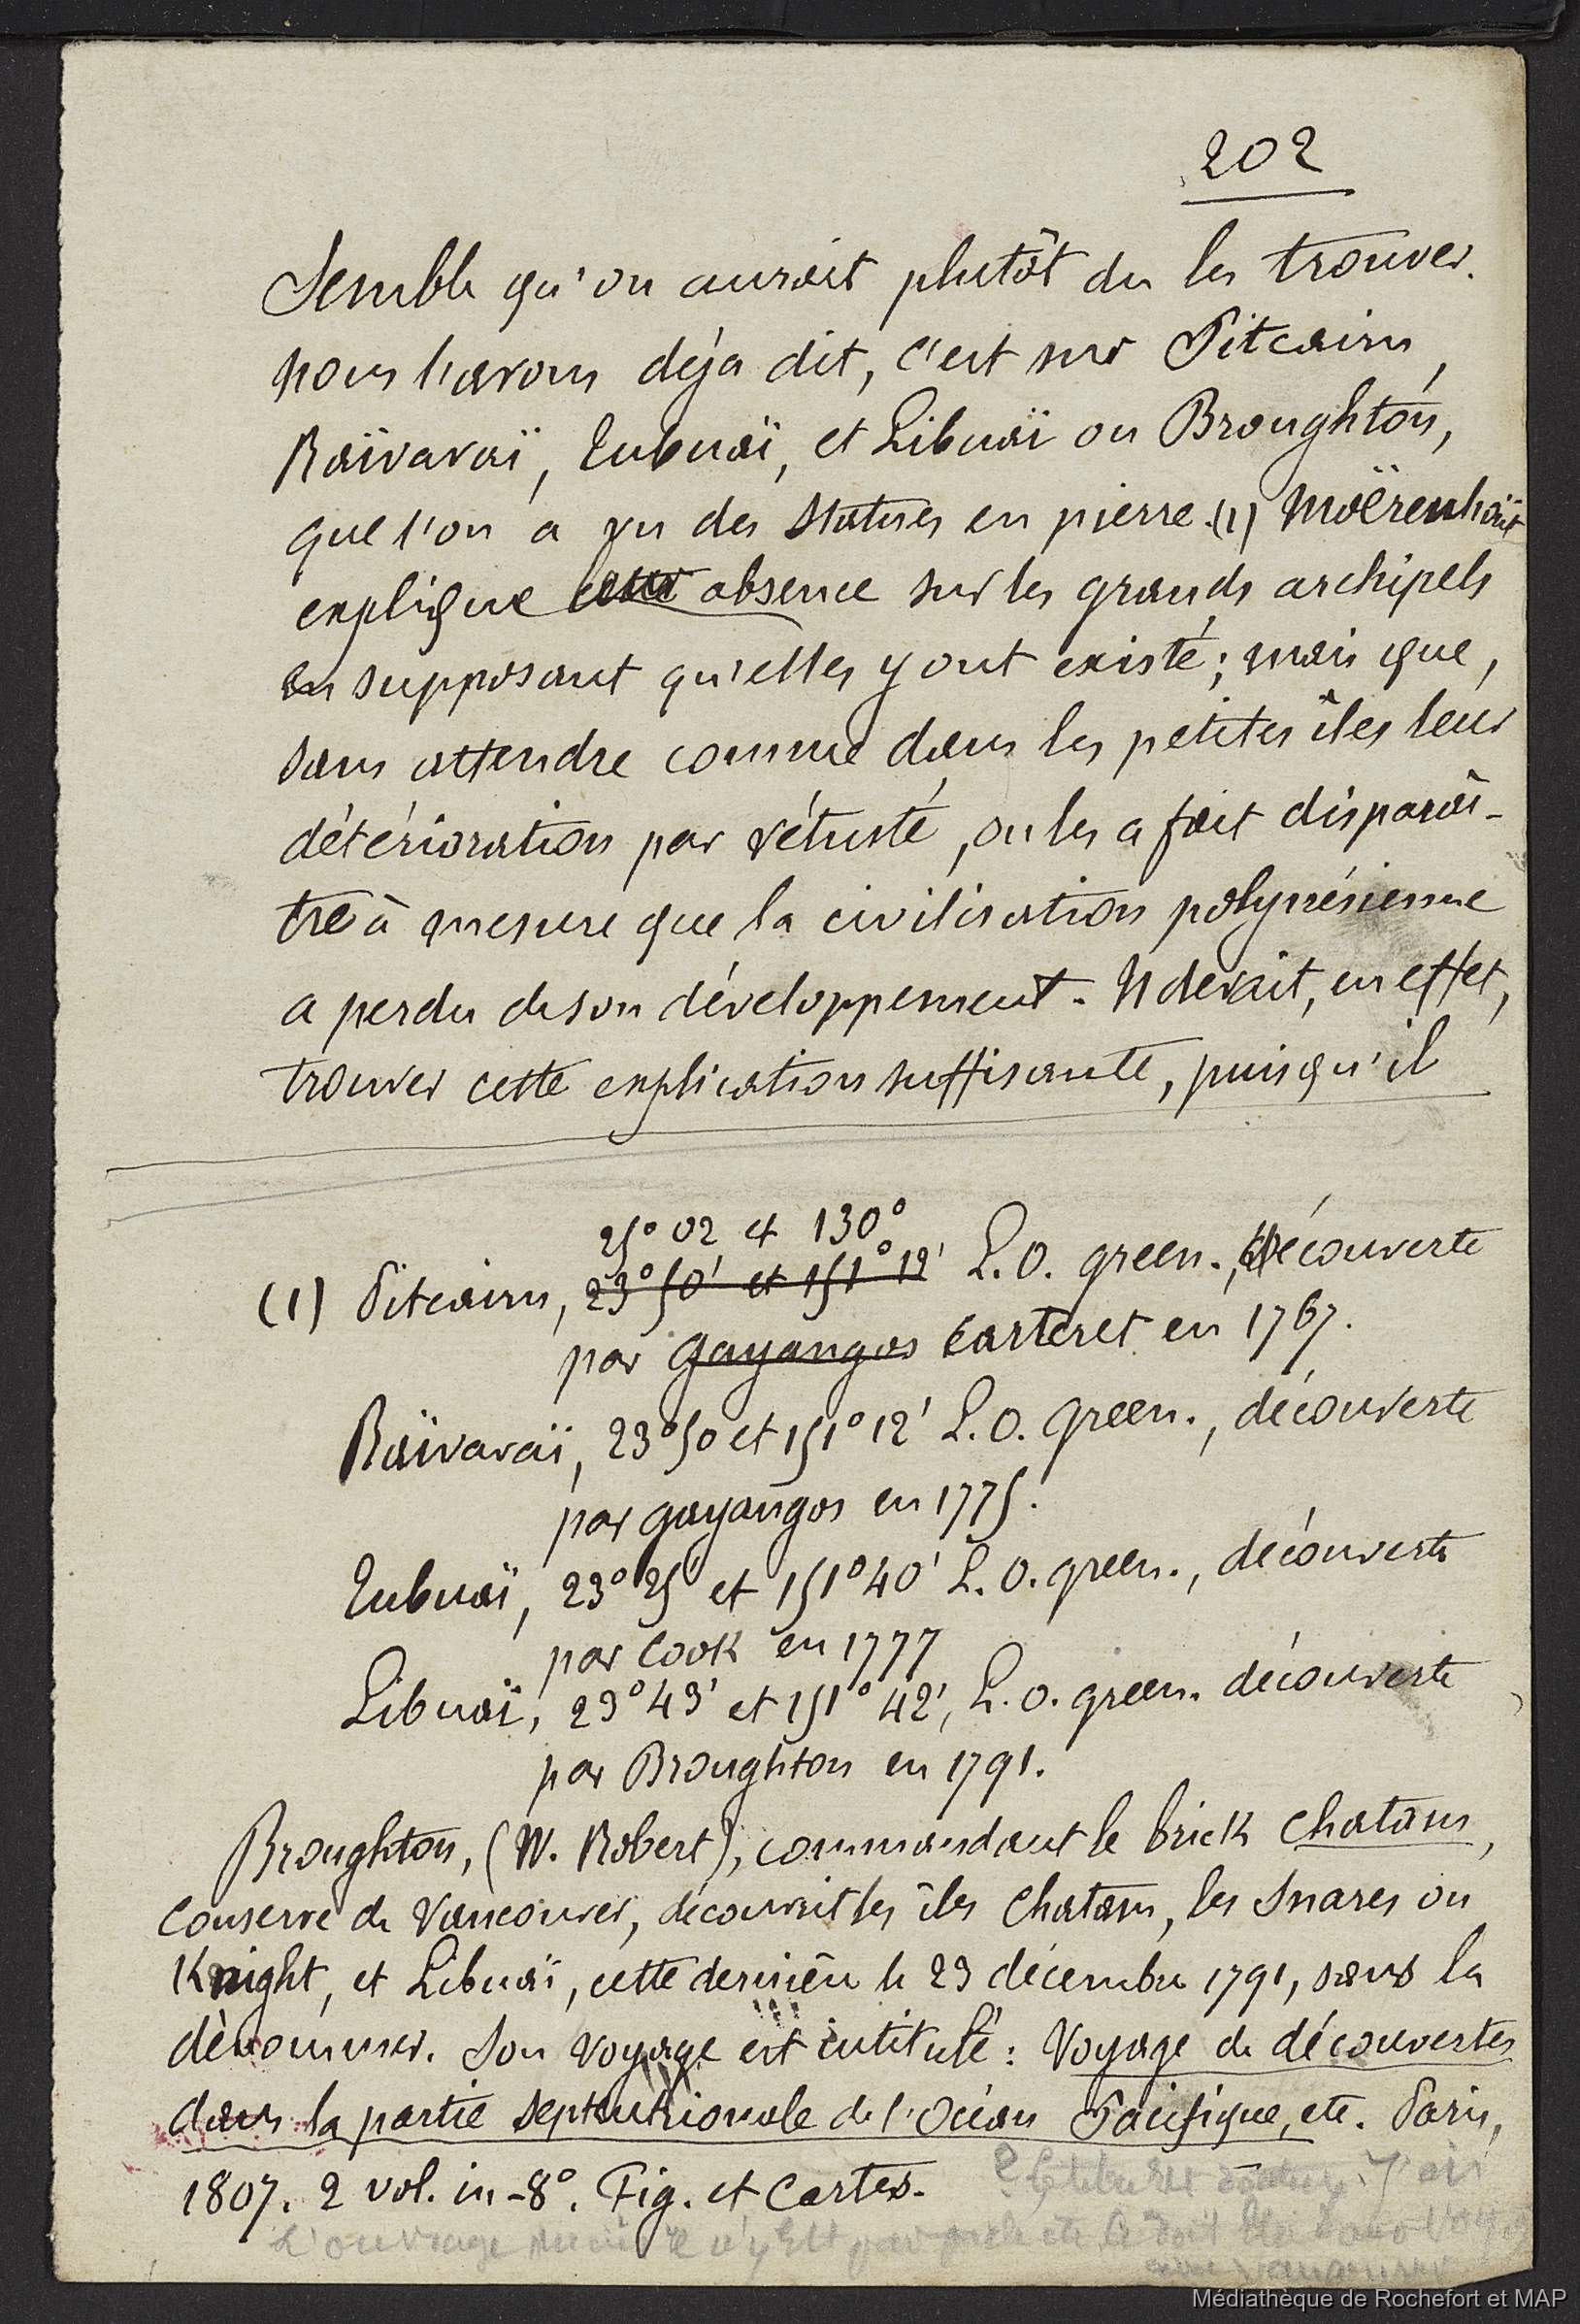 202
Semble qu'on aurait plutôt du les trouver.
nous l'avons déja dit, c'est sur Pitcairn,
Raïvavaï, Tubuaï, et Libuaï ou Broughton,
que l'on a vu des statues en pierre.(1) Moërenhoüt
explique cette absence sur les grands archipels
en supposant qu'elles y ont existé; mais que,
sans attendre comme dans les petites îles leur
détérioration par vétusté, on les a fait disparaî-
tre à mesure que la civilisation polynésienne
a perdu de son développement. Il devait, en effet,
trouver cette explication suffisante, puisqu'il
25° 02 et 130°
(1) Pitcairn, 23° 50' et 151° 12' L.O. green., découverte
par Gayangos Carteret en 1767.
Raïvavaï, 23° 50 et 151° 12' L.O. Green., découverte
par gayangos en 1775.
Tubuaï, 23° 25' et 151° 40' L.O. green., découverte
par Cook en 1777
Libuaï, 23° 43' et 151° 42', L.O. green. découverte
par Broughton en 1791.
Broughton, (W. Robert), commandant le brick Chatam,
Conserve de Vancouver, découvrit les îles Chatam, les Snares ou
Knight, et Libuaï, cette dernière le 23 décembre 1791, sans la
dénommer. Son voyage est intitulé : Voyage de découvertes
dans la partie septentrionale de l'Océan Pacifique, etc. Paris,
1807. 2 vol. in-8°. Fig. et Cartes.
J'ai
L'ouvrage
Médiathèque de Rochefort et MAP